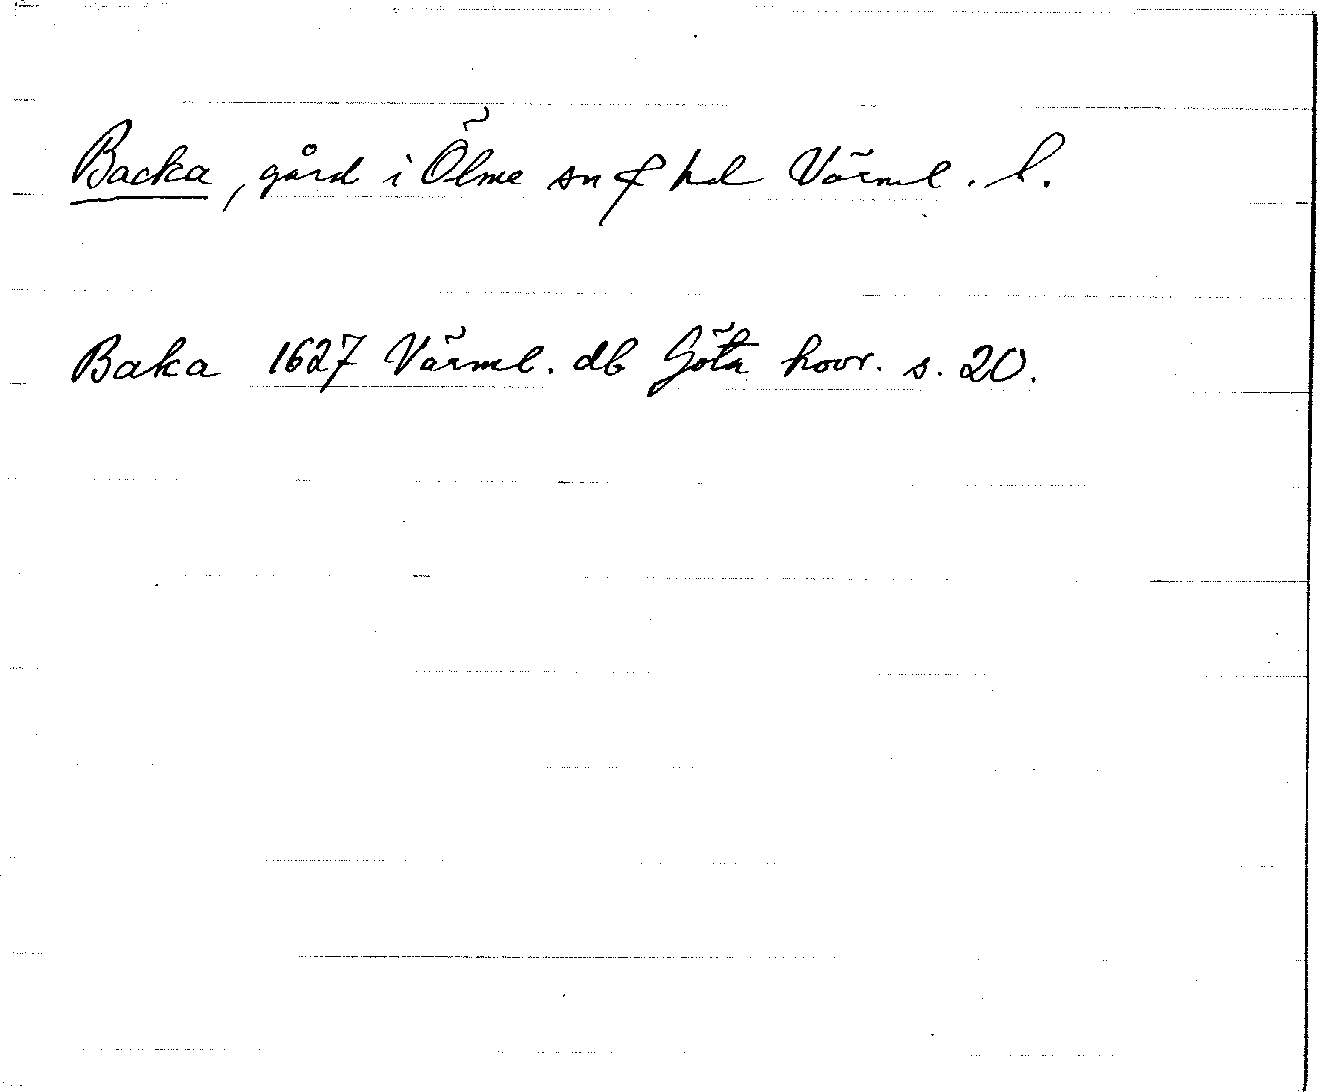 Backa, gård i Ölme sn & hd Värml. l.
Baka 1627 Värml. db Göta hovr. s. 20.